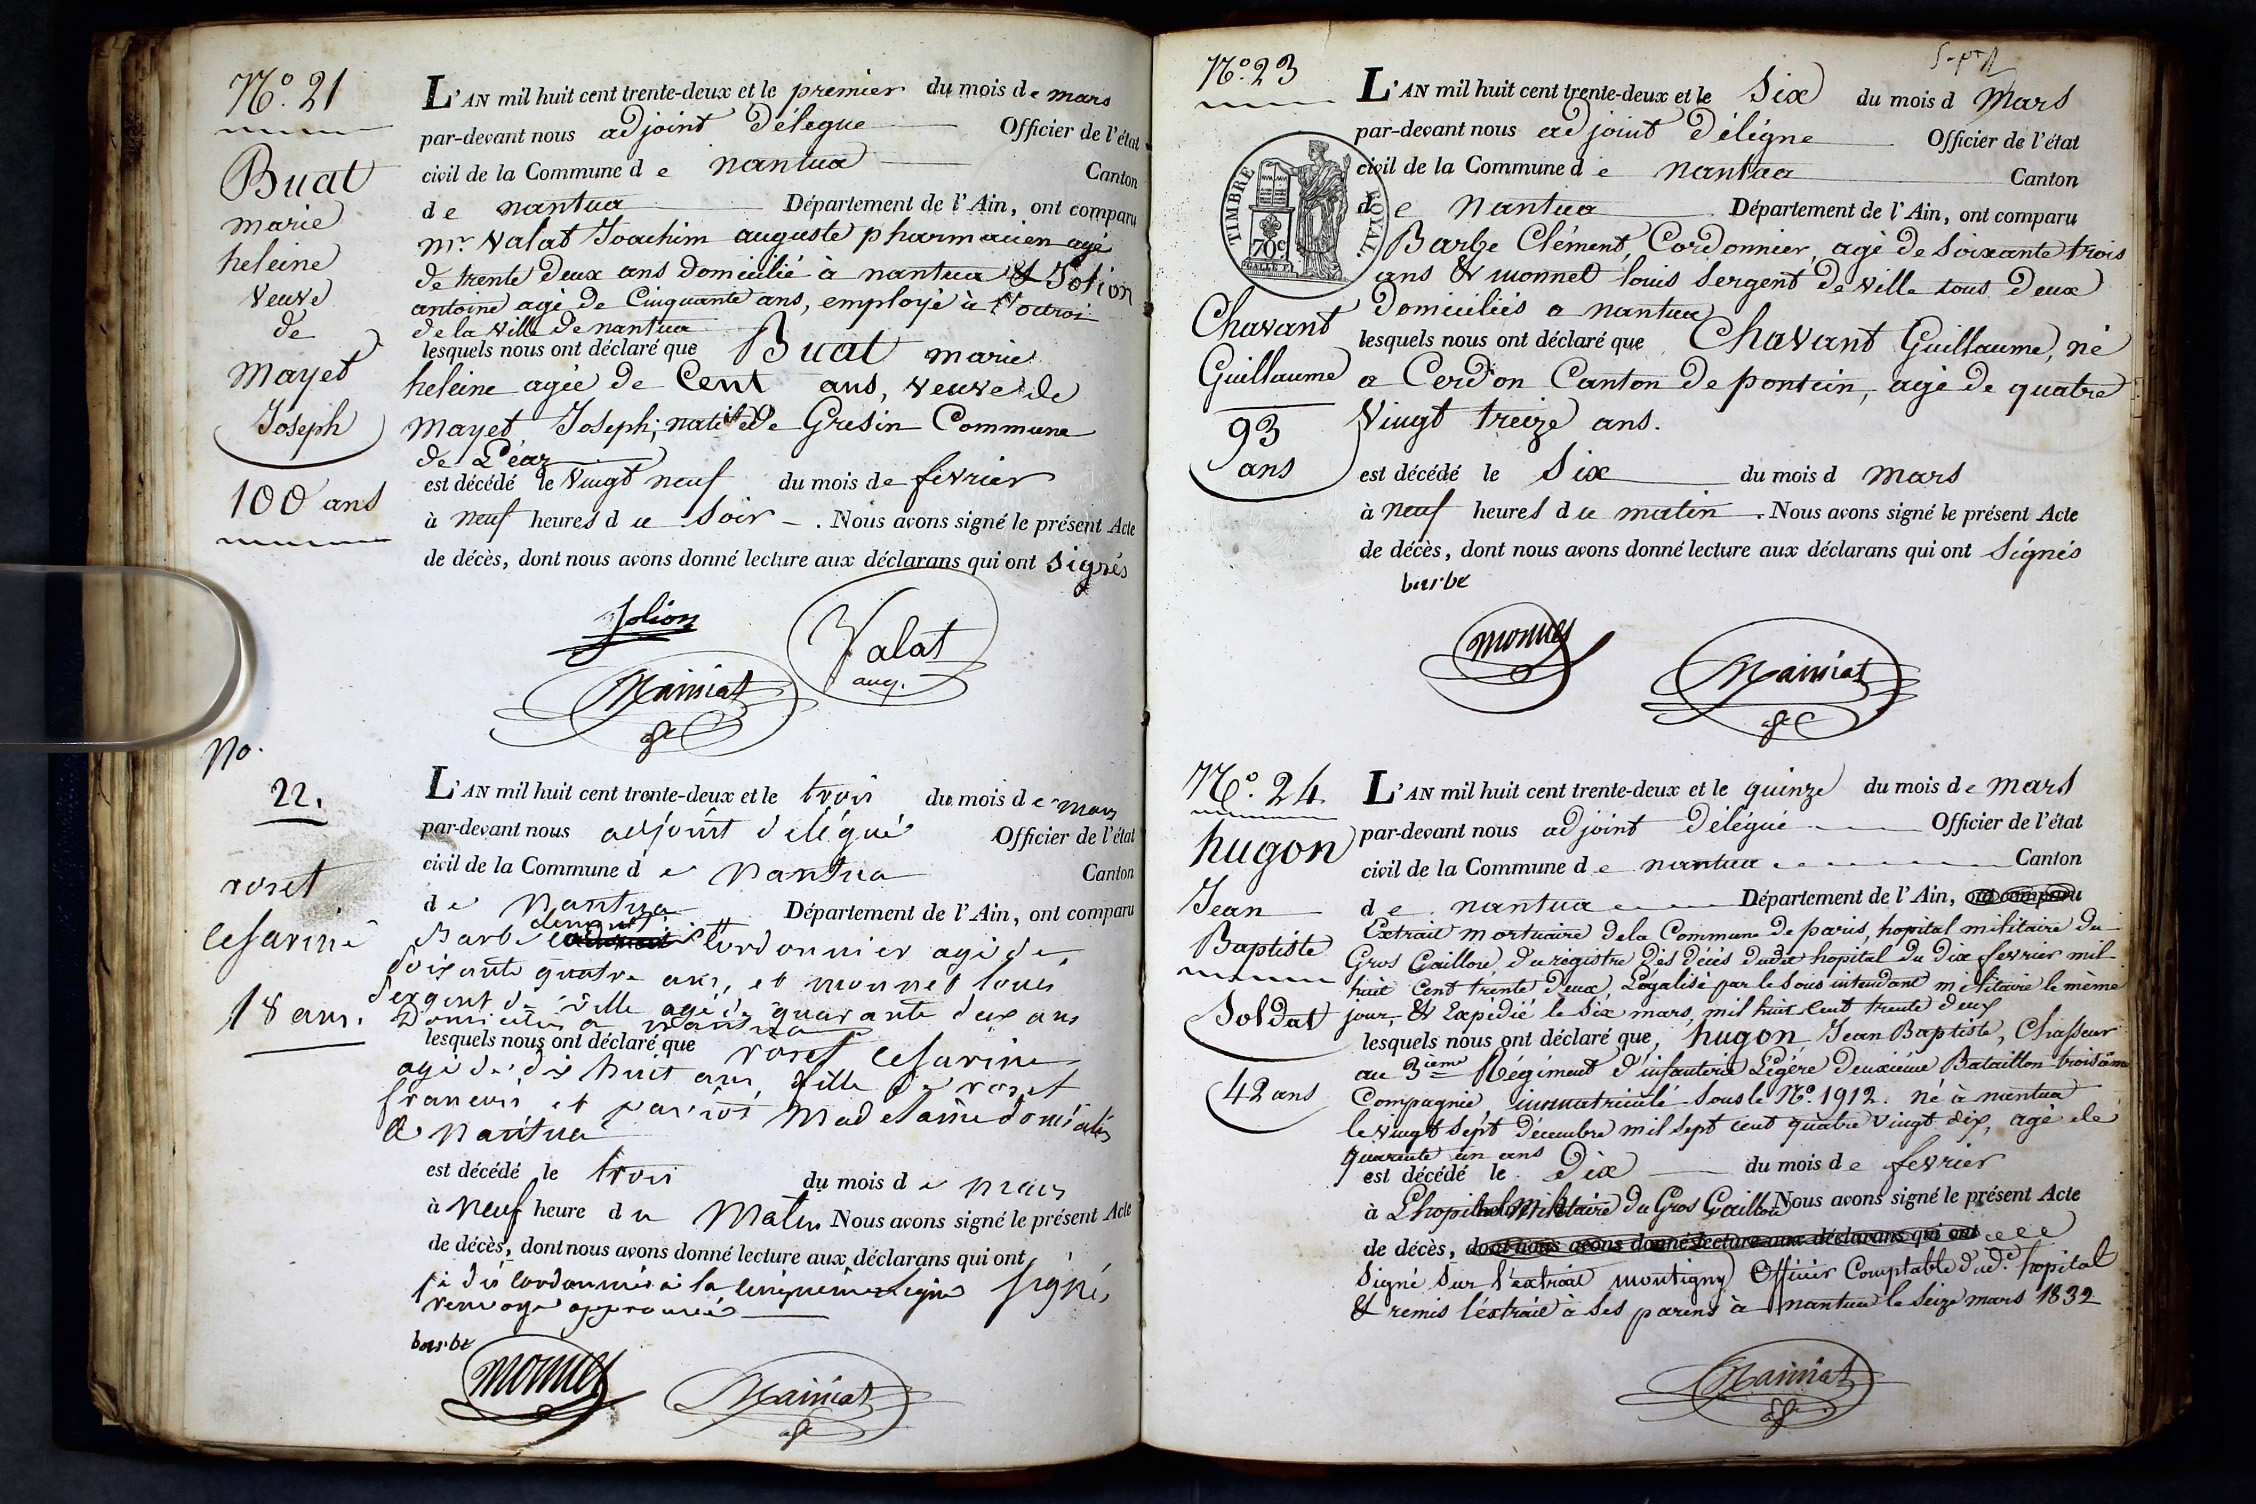 N.º 21
Buat
marie
heleine
veuve
de
mayet
Joseph
100 ans
L'AN mil huit cent trente-deux et le premier du mois de mars
par-devant nous adjoint délegue Officier de l'état
civil de la Commune de nantua Canton
de nantua Département de l'Ain, ont comparu
mr. Valat Joachim auguste pharmacien agé
de trente deux ans domicilié à nantua & Jolion
antoine agé de Cinquante ans, employé à l'octroi
de la ville de nantua
lesquels nous ont déclaré que Buat marie
heleine agée de Cent ans, veuve de
mayet Joseph; native de Gresin Commune
de Léaz
est décédé le vingt neuf du mois de février
à neuf heures du soir . Nous avons signé le présent Acte
de décès, dont nous avons donné lecture aux déclarans qui ont signés
Jolion
Valat
aug.
Mainiat
No.
22.
roset
Cesarine
18 ans.
L'AN mil huit cent trente-deux et le trois du mois de mars
par-devant nous adjoint délégué Officier de l'état
civil de la Commune de Nantua Canton
de Nantua Département de l'Ain, ont comparu
Barbe Clément Cordonnier agé de
Soixante quatre ans, et monnet louis
Sergent de ville agé de quarante deux ans
Domiciliés a nantua
lesquels nous ont déclaré que roset Cesarine
agé de dix huit ans, fille de roset
francois et Madelaine domiciliés
a Nantua
est décédé le trois du mois de mars
à neuf heure du Matin Nous avons signé le présent Acte
de décès, dont nous avons donné lecture aux déclarans qui ont
cordonnier à la cinquième ligne signés
renvoye approuvés
barbe
monnet
Mainiat
N.º 23
Chavant
Guillaume
93
ans
TIMBRE ROYAL.
70 c
L'AN mil huit cent trente-deux et le Six du mois d Mars
par-devant nous adjoint déligne Officier de l'état
civil de la Commune de nantua Canton
de Nantua Département de l'Ain, ont comparu
Barbe Clément, Cordonnier, agé de Soixante trois
ans & monnet louis Sergent de ville tous deux
domiciliés a nantua
lesquels nous ont déclaré que Chavant Guillaume, né
a Cerdon Canton de poncin, agé de quatre
Vingt treize ans.
est décédé le Six du mois d mars
à neuf heures du matin . Nous avons signé le présent Acte
de décès, dont nous avons donné lecture aux déclarans qui ont Signés
barbe
monnet
Mainiat
N.º 24
hugon
Jean
Baptiste
Soldat
42 ans
L'AN mil huit cent trente-deux et le quinze du mois de mars
par-devant nous adjoint délégué Officier de l'état
civil de la Commune de nantua Canton
de nantua Département de l'Ain, ont comparu
Extrait mortuaire dela Commune de paris, hopital militaire du
Gros Caillou, du régistre des décés dudit hopital du dix fevrier mil
huit Cent trente deux, Légalisé par le Sous intendant militaire le même
jour, & Expédié le Six mars, mil huit cent trente deux
lesquels nous ont déclaré que, hugon Jean Baptiste, Chasseur
au 3ieme Régiment d'infanterie Légére deuxiéme Bataillon troisième
Compagnie, immatriculé sous le N.º 1912. né à nantua
le vingt sept décembre mil sept cent quatre vingt dix, agé de
quarante un ans
est décédé le Dix du mois de fevrier
à Lhopital Militaire du Gros Caillou Nous avons signé le présent Acte
de décès, dont nous avons donné lecture aux déclarans qui ont
Signé Sur l'extrait montigny Officier Comptable dud. hopital
& remis l'éxtrait à Ses parens à nantua le Seize mars 1832
Mainiat